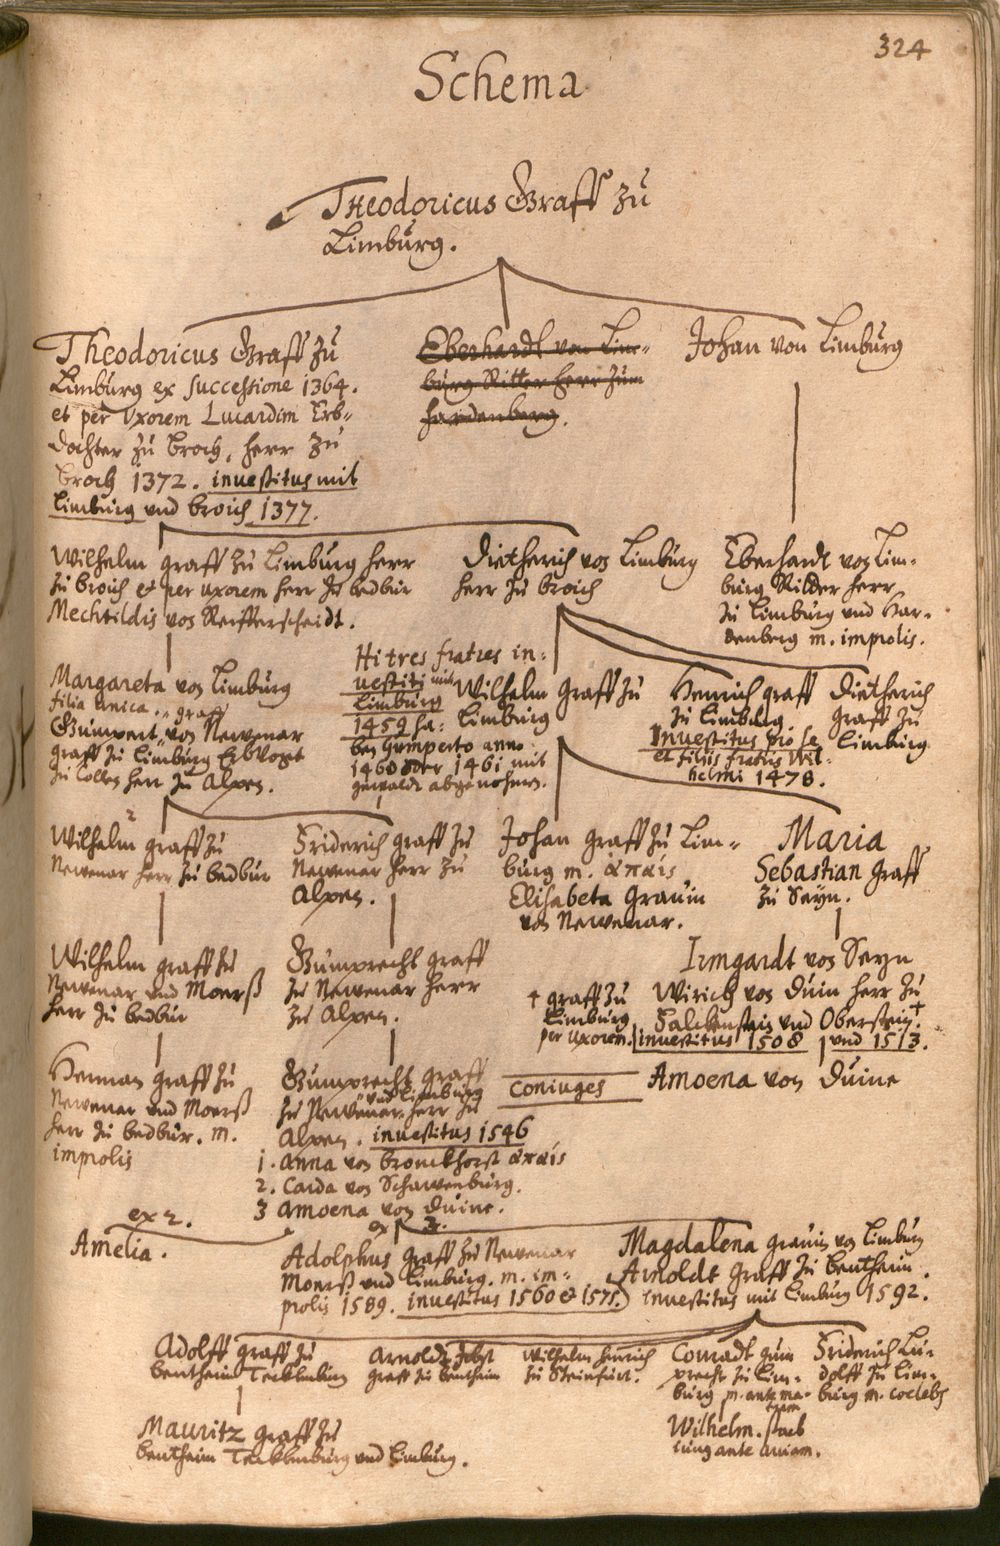 324
Schema
Theodoricus Graff zu
Limburg.
Theodoricus Graff zu
Limburg ex successione 1364.
et per Uxorem Lucardim Erb-
dochter zu Broch, herr zu
Broch 1372. inuestitus mit
Limburg und Broich 1377.
Eberhardt von Lim-
burg Ritter Herr zum
Hardenberg.
Johan von Limburg
Wilhelm graff zu Limburg herr
zu Broich et per uxorem herr zu bedbur
Mechtildis von Reifferscheidt.
Dietherich von Limburg
herr zu Broich
Eberhardt von Lim-
burg Ridder herr
zu Limburg und Har-
denberg m. improlis.
Margareta von Limburg
filia unica. graff
Gumpert von Newenar
graff zu Limburg Erbvogt
zu Collen herr zu Alpen.
Hi tres fratres in-
uestiti mit
Limburg
1459 ha:
ben Gumperto anno
1460 oder 1461 mit
gewaldt abgenohmen.
Wilhelm Graff zu
Limburg
Henrich graff
zu Limburg.
Inuestitus pro se
et filiis fratris Wil-
helmi 1478.
Dietherich
graff zu
Limburg
2
Wilhelm graff zu
Newenar herr zu bedbur
Friderich graff zu
Newenar herr zu
Alpen.
Johan graff zu Lim-
burg m. ἄπαις
Elisabeta Grauin
von Newenar.
Maria
Sebastian Graff
zu Sayn.
Wilhelm graff zu
Newenar und Moerß
herr zu bedbur
Gumprecht graff
zu Newenar herr
zu Alpen.
Irmgardt von Seyn
Wirich von Duin herr zu
Falckenstein und Oberstein. †
inuestitus 1508 und 1513.
† graff zu
Limburg
per uxorem.
Herman graff zu
Newenar und Moerß
herr zu bedbur. m.
improlis
Gumprecht graff
und Limburg
zu Newenar herr zu
Alpen. inuestitus 1546
1. Anna von Bronckhorst ἄπαις
2. Corda von Schawenburg.
3 Amoena von Duine.
coniuges
Amoena von Duine
ex 2.
Amelia.
ex 3.
Adolphus graff zu Newenar
Moerß und Limburg. m. im-
prolis 1589. inuestitus 1560 & 1575.
Magdalena grauin von Limburg
Arnoldt Graff zu Bentheim.
Inuestitus mit Limburg 1592.
Adolff graff zu
bentheim Tecklenburg
Arnoldt Jobst
graff zu Bentheim
Wilhelm henrich
zu Steinfurt.
Conradt gum
precht zu Lim-
burg m. ante ma-
trem
Wilhelm. starb
iung ante auiam.
Friderich Lu-
dolff zu Lim-
burg m. coelebs
Mauritz graff zu
bentheim Tecklenburg und Limburg.